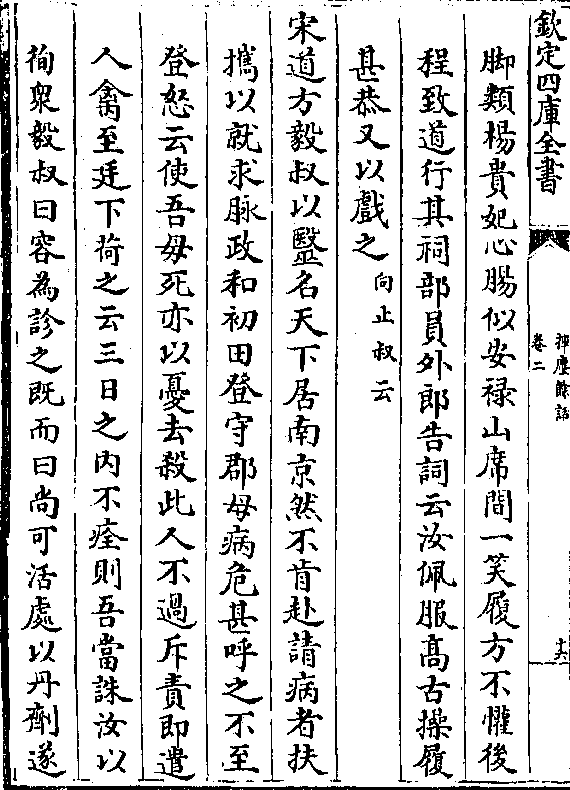 欽定四庫全書
揮麈餘話
卷二
十六
脚類楊貴妃心腸似安禄山席間一笑履方不懽後
程致道行其祠部員外郎告詞云汝佩服髙古操履
甚恭又以戲之向止叔云
宋道方毅叔以毉名天下居南京然不肯赴請病者扶
攜以就求脉政和初田登守郡母病危甚呼之不至
登怒云使吾母死亦以憂去殺此人不過斥責即遣
人禽至廷下荷之云三日之内不痊則吾當誅汝以
徇衆毅叔曰容為診之既而曰尚可活處以丹劑遂